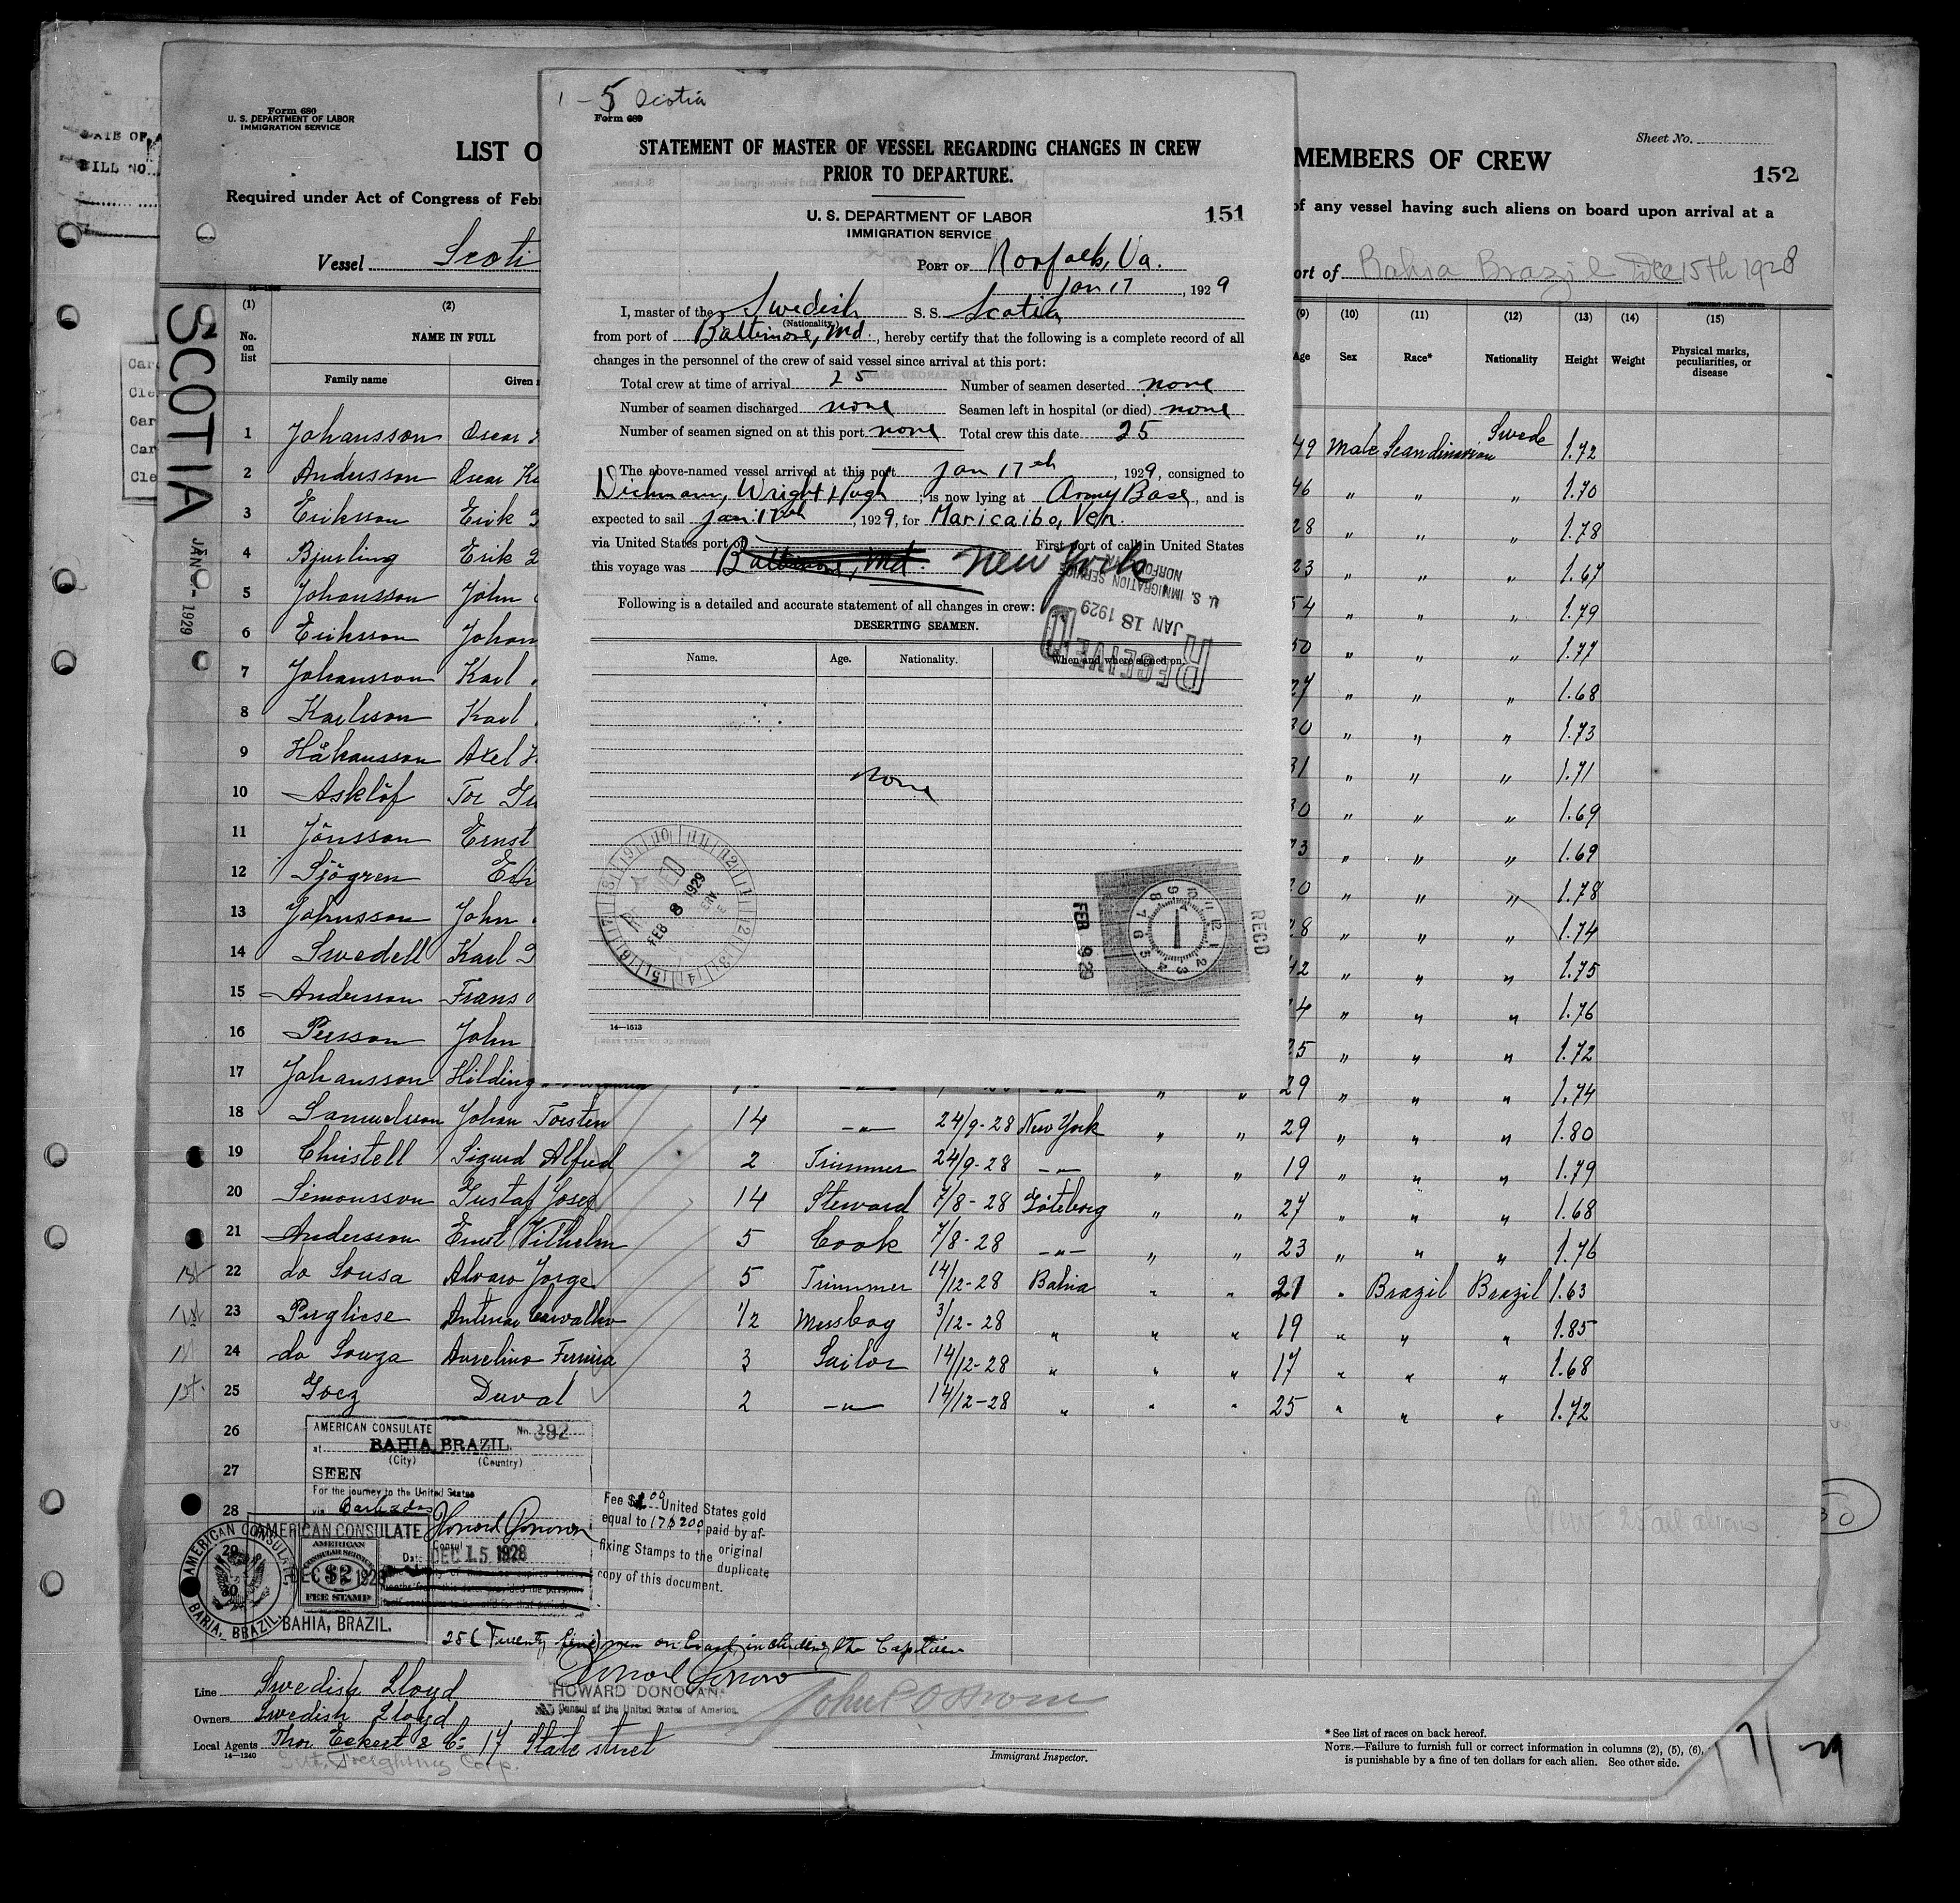 1 - 5 Scotia
Form 689
STATEMENT OF MASTER OF VESSEL REGARDING CHANGES IN CREW
PRIOR TO DEPARTURE.
U. S. DEPARTMENT OF LABOR
IMMIGRATION SERVICE
151
PORT OF Norfolk, Va.
Jan 17, 1929
I, master of the Swedish S. S. Scotia
(Nationality)
from port of Baltimore, Md., hereby certify that the following is a complete record of all
changes in the personnel of the crew of said vessel since arrival at this port:
Total crew at time of arrival 25 Number of seamen deserted none
Number of seamen discharged none Seamen left in hospital (or died) none
Number of seamen signed on at this port none Total crew this date 25
The above-named vessel arrived at this port Jan 17th, 1929, consigned to
Dichmann, Wright & Pugh; is now lying at Army Base, and is
expected to sail Jan. 17th, 1929, for Maricaibo, Ven.
via United States port of First port of call in United States
this voyage was Baltimore, Md. New York
U. S. IMMIGRATION SERVICE
NORFOLK
JAN 18 1929
RECEIVED
Following is a detailed and accurate statement of all changes in crew:
DESERTING SEAMEN.
Name. Age. Nationality. When and where signed on.
none
FEB 8 1929
FEB 9 29
RECD
14—1513
Form 680
U. S. DEPARTMENT OF LABOR
IMMIGRATION SERVICE
LIST O
MEMBERS OF CREW
Sheet No.
152
Required under Act of Congress of Feb
of any vessel having such aliens on board upon arrival at a
Vessel Scoti
ort of Bahia Brazil Dec 15th 1928
SCOTIA
(1) (2) (9) (10) (11) (12) (13) (14) (15)
No. on list NAME IN FULL Age Sex Race* Nationality Height Weight Physical marks, peculiarities, or disease
Family name Given
1 Johansson Oscar 49 Male Scandinavian Swede 1.72
2 Andersson Oscar 46 " " " 1.70
3 Eriksson Erik 28 " " " 1.78
4 Bjurling Erik 23 " " " 1.67
5 Johansson John 54 " " " 1.79
6 Eriksson Johan 50 " " " 1.77
7 Johansson Karl 27 " " " 1.68
8 Karlsson Karl 30 " " " 1.73
9 Håkansson Axel 31 " " " 1.71
10 Asklöf Tor 30 " " " 1.69
11 Jönsson Ernst " " " 1.69
12 Sjögren " " " 1.78
13 Johnsson John 28 " " " 1.74
14 Swedell Karl 42 " " " 1.75
15 Andersson Frans " " " 1.76
16 Persson John 25 " " " 1.72
17 Johansson Hilding " " 29 " " " 1.74
18 Samuelsson Johan Torsten 14 -"- 24/9-28 New York " " 29 " " " 1.80
19 Christell Sigurd Alfred 2 Trimmer 24/9-28 -"- " " 19 " " " 1.79
20 Simonsson Gustaf Josef 14 Steward 7/8-28 Göteborg " " 27 " " " 1.68
21 Andersson Ernst Vilhelm 5 Cook 7/8-28 -"- " " 23 " " " 1.76
1st 22 do Sousa Alvaro Jorge 5 Trimmer 14/12-28 Bahia " " 21 " Brazil Brazil 1.63
1st 23 Pugliese Antenor Carvalho 1/2 Messboy 3/12-28 " " " 19 " " " 1.85
24 do Souza Aurelino Ferreira 3 Sailor 14/12-28 " " " 17 " " " 1.68
1st. 25 Goez Duval 2 -"- 14/12-28 " " " 25 " " " 1.72
26
27
28
AMERICAN CONSULATE No. 392
at BAHIA, BRAZIL.
(City) (Country)
SEEN
For the journey to the United States
via Barbados
Howard Donovan
Consul
Date DEC 15 1928
AMERICAN CONSULATE
AMERICAN CONSULAR SERVICE
$2
FEE STAMP
BAHIA, BRAZIL.
AMERICAN CONSULATE, BAHIA, BRAZIL.
Fee $ United States gold
equal to 17$200, paid by af-
fixing Stamps to the original
duplicate
copy of this document.
Crew 25 all aliens
25 (Twenty five) men on board including the Captain
Howard Donovan
HOWARD DONOVAN.
Consul of the United States of America.
Line Swedish Lloyd
Owners Swedish Lloyd
Local Agents Thor Eckert & Co 17 State street
14—1240
Immigrant Inspector.
* See list of races on back hereof.
NOTE.—Failure to furnish full or correct information in columns (2), (5), (6),
is punishable by a fine of ten dollars for each alien. See other side.